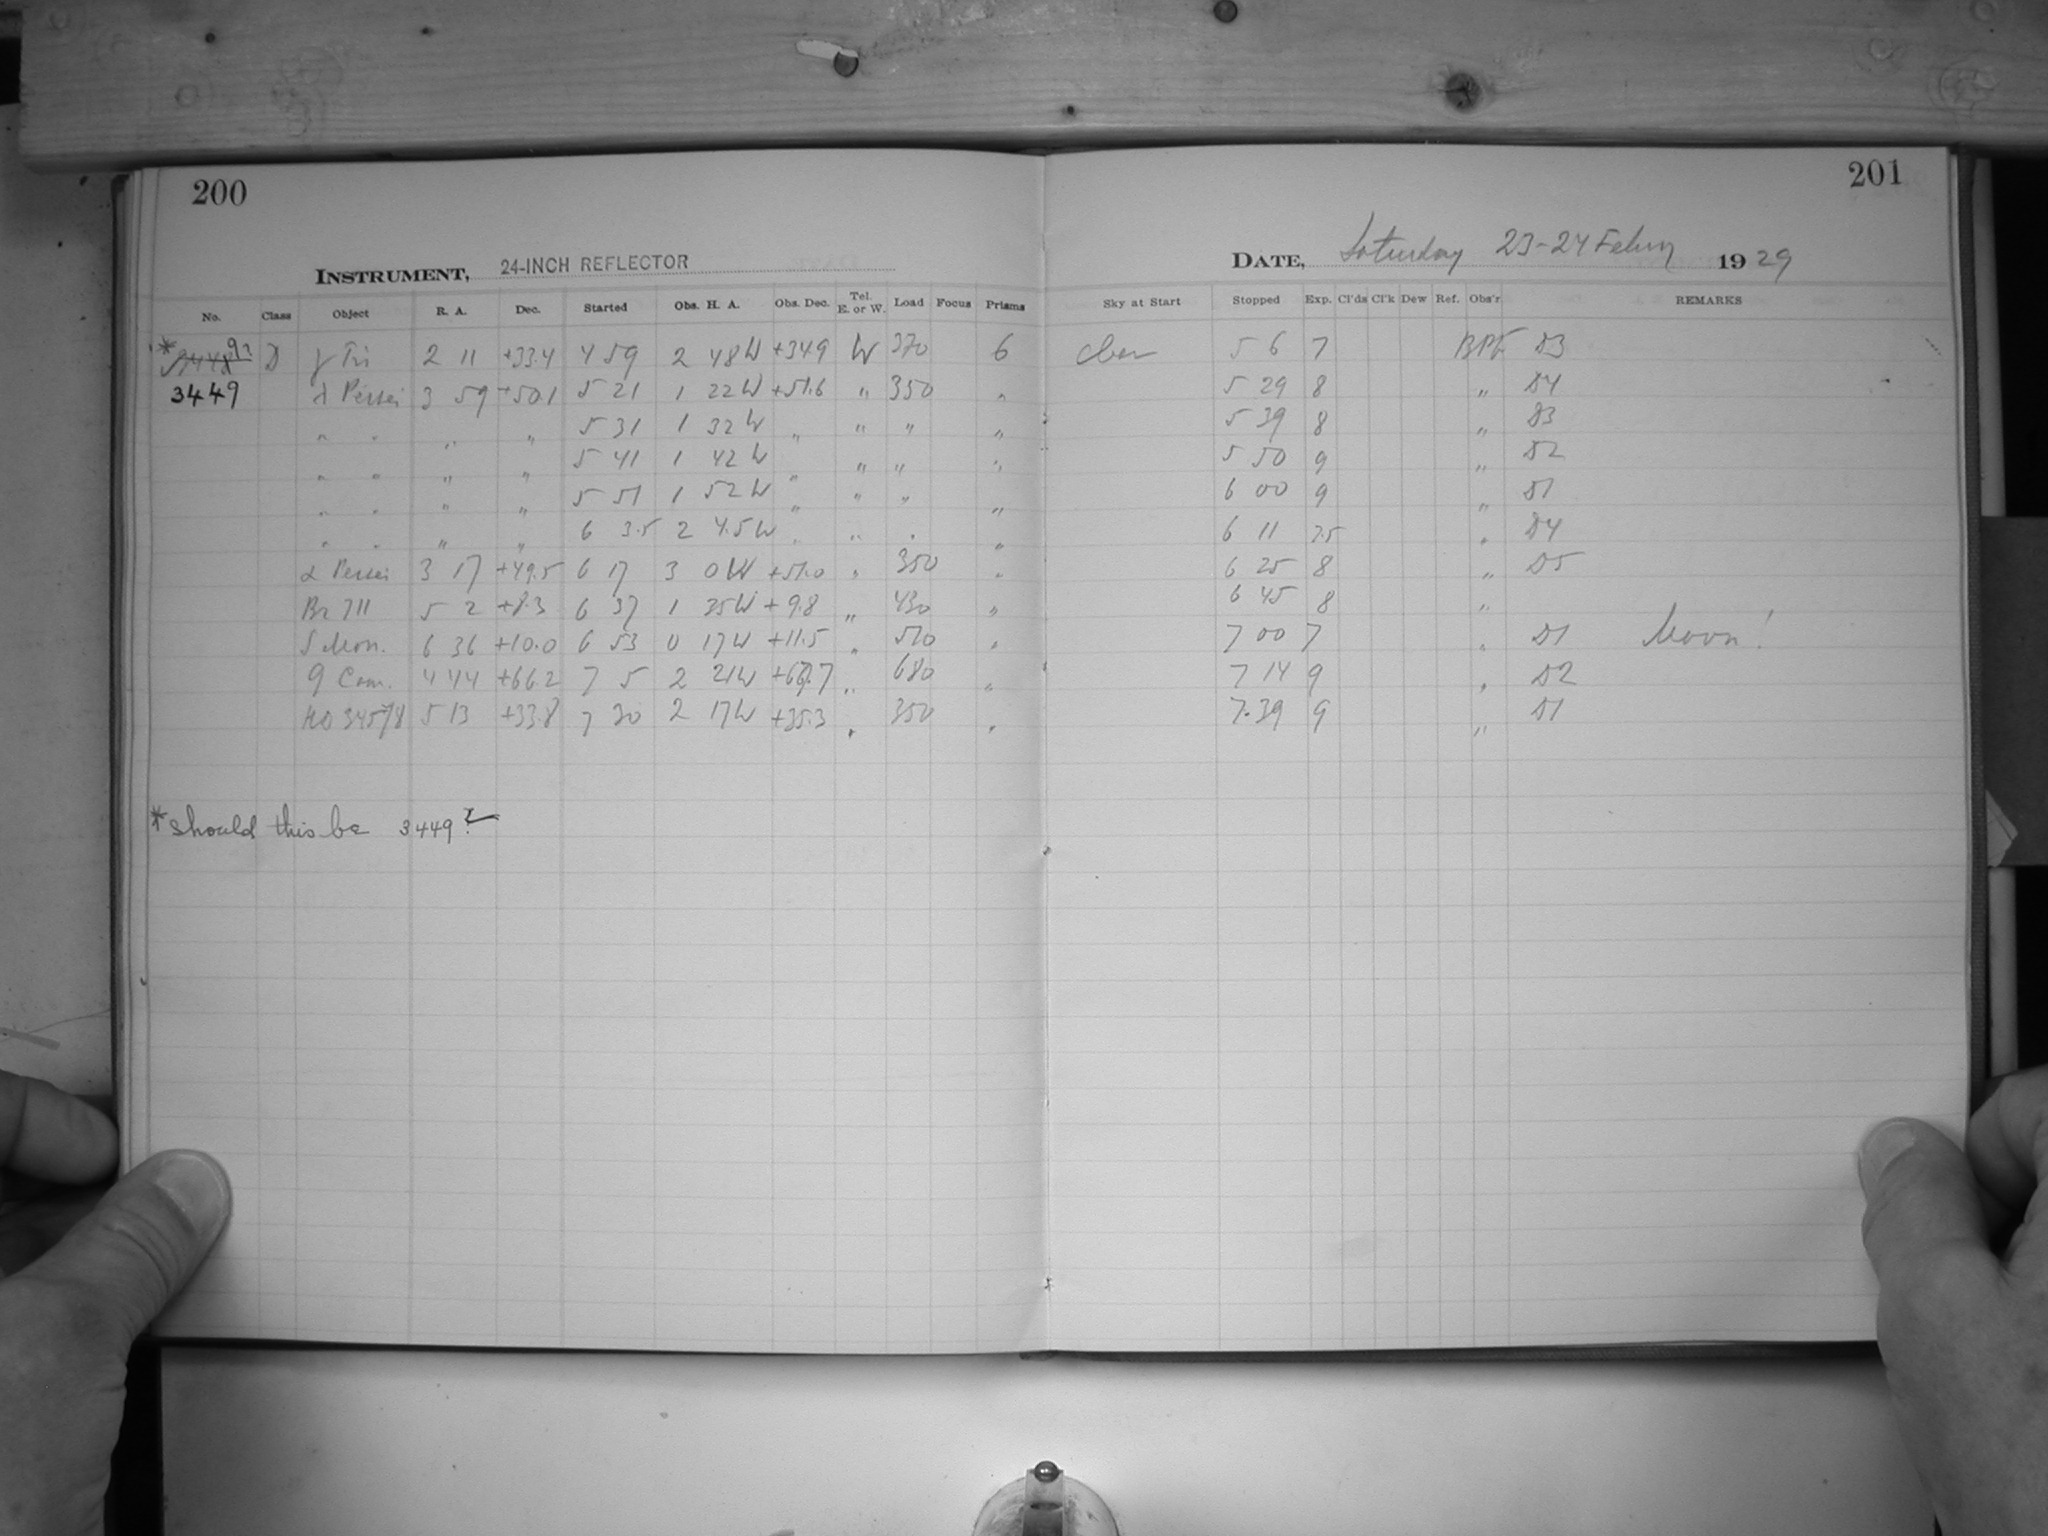 200
201
INSTRUMENT, 24-INCH REFLECTOR
DATE, Saturday 23-24 19 29
No. Class Object R. A. Dec. Started Obs. H. A. Obs. Dec. Tel. E. or W. Load Focus Prisms Sky at Start Stopped Exp. Cl'ds Cl'k Dew Ref. Obs'r REMARKS
* γ Tri 2 11 +33.4 4 59 2 48W +34.9 W 370 6 5 6 7 D3
3449 λ Persei 3 59 +50.1 5 21 1 22W +51.6 " 350 " 5 29 8 " D4
" " " " 5 31 1 32W " " " " 5 39 8 " D3
" " " " 5 41 1 42W " " " " 5 50 9 " D2
" " " " 5 51 1 52W " " " " 6 00 9 " D1
" " " " 6 3.5 2 4.5W " " " " 6 11 7.5 " D4
α Persei 3 17 +49.5 6 17 3 0W +51.0 " 350 " 6 25 8 " D5
Br 711 5 2 +8.3 6 37 1 35W +9.8 " 430 " 6 45 8 "
S Mon. 6 36 +10.0 6 53 0 17W +11.5 " 510 " 7 00 7 " D1 Moon!
9 Cam. 4 44 +66.2 7 5 2 21W +67.7 " 680 " 7 14 9 " D2
HD 34578 5 13 +33.8 7 30 2 17W +35.3 " 350 " 7.39 9 " D1
* should this be 3449?